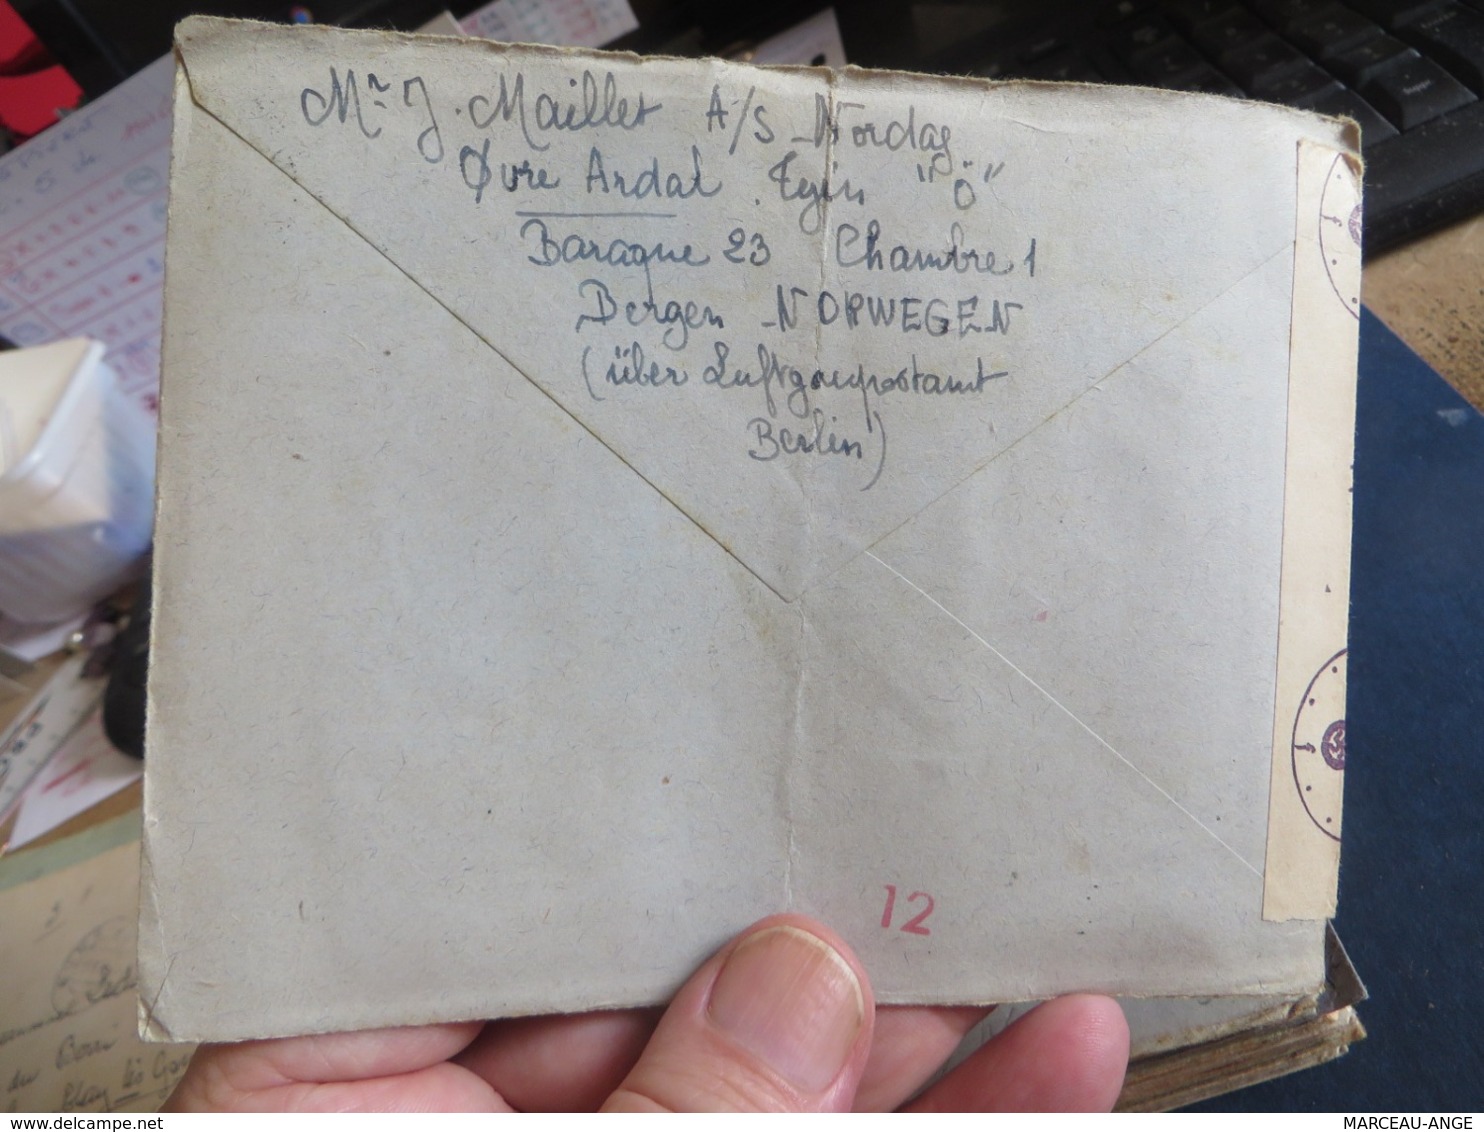 Mr J. Maillet A/S Nordag
Øvre Ardal. Tyin "Ö"
Baraque 23 Chambre 1
Bergen NORWEGEN
(über Luftgaupostamt
Berlin)
12
MARCEAU-ANGE